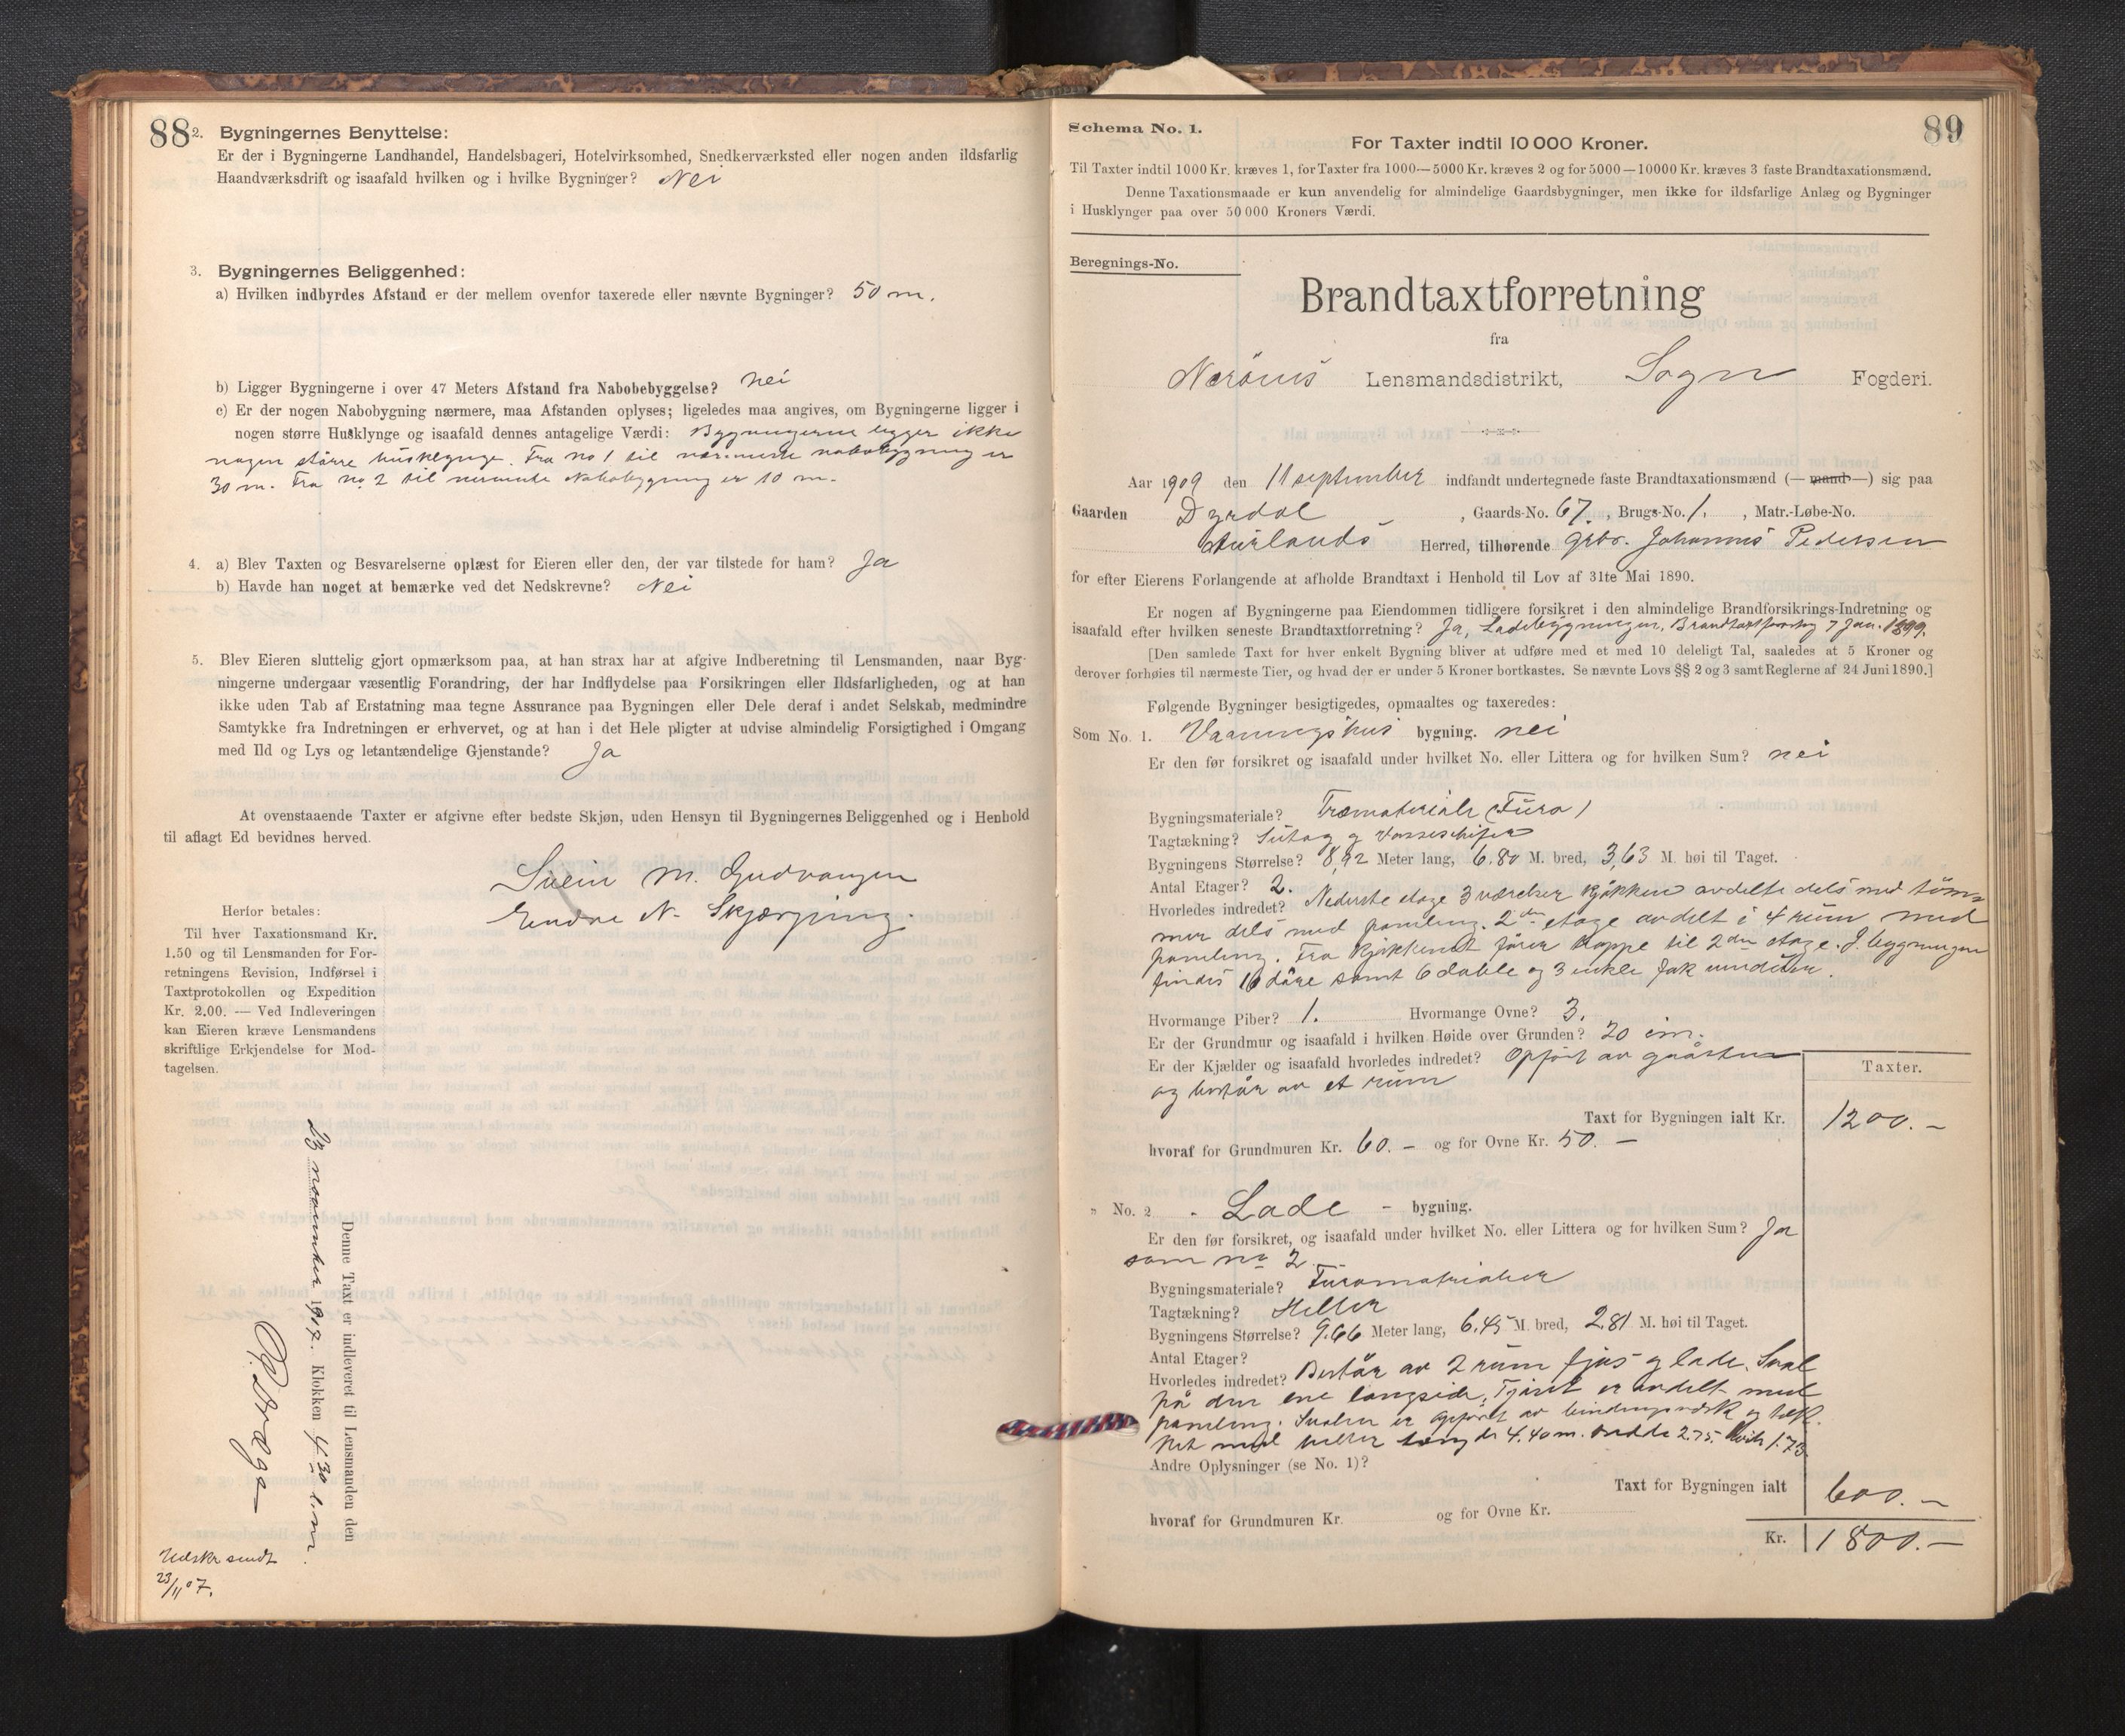 88
2. Bygningernes Benyttelse:
Er der i Bygningerne Landhandel, Handelsbageri, Hotelvirksomhed, Snedkerværksted eller nogen anden ildsfarlig
Haandværksdrift og isaafald hvilken og i hvilke Bygninger? Nei
3. Bygningernes Beliggenhed:
a) Hvilken indbyrdes Afstand er der mellem ovenfor taxerede eller nævnte Bygninger? 50 m.
b) Ligger Bygningerne i over 47 Meters Afstand fra Nabobebyggelse? nei
c) Er der nogen Nabobygning nærmere, maa Afstanden oplyses; ligeledes maa angives, om Bygningerne ligger i
nogen større Husklynge og isaafald dennes antagelige Værdi: Bygningerne ligger ikke
nogen større husklynge. Fra no 1 til nærmeste nabobygning er
30 m. Fra no 2 til nærmeste nabobygning er 10 m.
4. a) Blev Taxten og Besvarelserne oplæst for Eieren eller den, der var tilstede for ham? Ja
b) Havde han noget at bemærke ved det Nedskrevne? Nei
5. Blev Eieren sluttelig gjort opmærksom paa, at han strax har at afgive Indberetning til Lensmanden, naar Byg-
ningerne undergaar væsentlig Forandring, der har Indflydelse paa Forsikringen eller Ildsfarligheden, og at han
ikke uden Tab af Erstatning maa tegne Assurance paa Bygningen eller Dele deraf i andet Selskab, medmindre
Samtykke fra Indretningen er erhvervet, og at han i det Hele pligter at udvise almindelig Forsigtighed i Omgang
med Ild og Lys og letantændelige Gjenstande? Ja
At ovenstaaende Taxter er afgivne efter bedste Skjøn, uden Hensyn til Bygningernes Beliggenhed og i Henhold
til aflagt Ed bevidnes herved.
Svein M. Gudvangen
Endre N. Skjerping.
Herfor betales:
Til hver Taxationsmand Kr.
1.50 og til Lensmanden for For-
retningens Revision, Indførsel i
Taxtprotokollen og Expedition
Kr. 2.00. — Ved Indleveringen
kan Eieren kræve Lensmandens
skriftlige Erkjendelse for Mod-
tagelsen.
Denne Taxt er indleveret til Lensmanden den
23 november 1907. Klokken 4.30 e.m.
Udskr sendt
23/11 07.
Schema No. 1.
89
For Taxter indtil 10 000 Kroner.
Til Taxter indtil 1000 Kr. kræves 1, for Taxter fra 1000—5000 Kr. kræves 2 og for 5000—10000 Kr. kræves 3 faste Brandtaxationsmænd.
Denne Taxationsmaade er kun anvendelig for almindelige Gaardsbygninger, men ikke for ildsfarlige Anlæg og Bygninger
i Husklynger paa over 50 000 Kroners Værdi.
Beregnings-No.
Brandtaxtforretning
fra
Nerøens Lensmandsdistrikt, Sogn Fogderi.
Aar 1909 den 11 september indfandt undertegnede faste Brandtaxationsmænd (— mand —) sig paa
Gaarden Dyrdal, Gaards-No. 67., Brugs-No. 1., Matr.-Løbe-No.
Aurlands Herred, tilhørende Gbr. Johannes Pedersen
for efter Eierens Forlangende at afholde Brandtaxt i Henhold til Lov af 31te Mai 1890.
Er nogen af Bygningerne paa Eiendommen tidligere forsikret i den almindelige Brandforsikrings-Indretning og
isaafald efter hvilken seneste Brandtaxtforretning? Ja, Ladebygningen, Brandtaxtforretng 7 Jan. 1899.
[Den samlede Taxt for hver enkelt Bygning bliver at udføre med et med 10 deleligt Tal, saaledes at 5 Kroner og
derover forhøies til nærmeste Tier, og hvad der er under 5 Kroner bortkastes. Se nævnte Lovs §§ 2 og 3 samt Reglerne af 24 Juni 1890.]
Følgende Bygninger besigtigedes, opmaaltes og taxeredes:
Som No. 1. Vaaningshus bygning. nei
Er den før forsikret og isaafald under hvilket No. eller Littera og for hvilken Sum? nei
Bygningsmateriale? Træmateriale (Furu)
Tagtækning? Sutag og Vosseskifer
Bygningens Størrelse? 8,92 Meter lang, 6.80 M. bred, 3,63 M. høi til Taget.
Antal Etager? 2.
Hvorledes indredet? Nederste etage 3 værelser kjøkken avdelte dels med tøm-
mer dels med paneling. 2den etage avdelt i 4 rum med
paneling. Fra kjøkkenet fører trappe til 2den etage. I bygningen
findes 10 døre samt 6 doble og 3 enkle fak vinduer.
Hvormange Piber? 1. Hvormange Ovne? 3.
Er der Grundmur og isaafald i hvilken Høide over Grunden? 20 cm.
Er der Kjælder og isaafald hvorledes indredet? Opført av graasten
og består av et rum
Taxter.
Taxt for Bygningen ialt Kr. 1200.—
hvoraf for Grundmuren Kr. 60.— og for Ovne Kr. 50.—
" No. 2 - Lade - bygning.
Er den før forsikret, og isaafald under hvilket No. eller Littera og for hvilken Sum? Ja
som no 2
Bygningsmateriale? Furumaterialier
Tagtækning? Heller
Bygningens Størrelse? 9.66 Meter lang, 6.45 M. bred, 2.81 M. høi til Taget.
Antal Etager?
Hvorledes indredet? Består av 2 rum fjøs og lade. Sval
på den ene langside. Fjøset er avdelt med
paneling. Svalen er opført av bindingsværk og tækket
med heller længde 4.40 m. bredde 2.75. Høide 1.73
Andre Oplysninger (se No. 1)?
Taxt for Bygningen ialt 600.—
hvoraf for Grundmuren Kr. og for Ovne Kr.
Kr. 1800.—